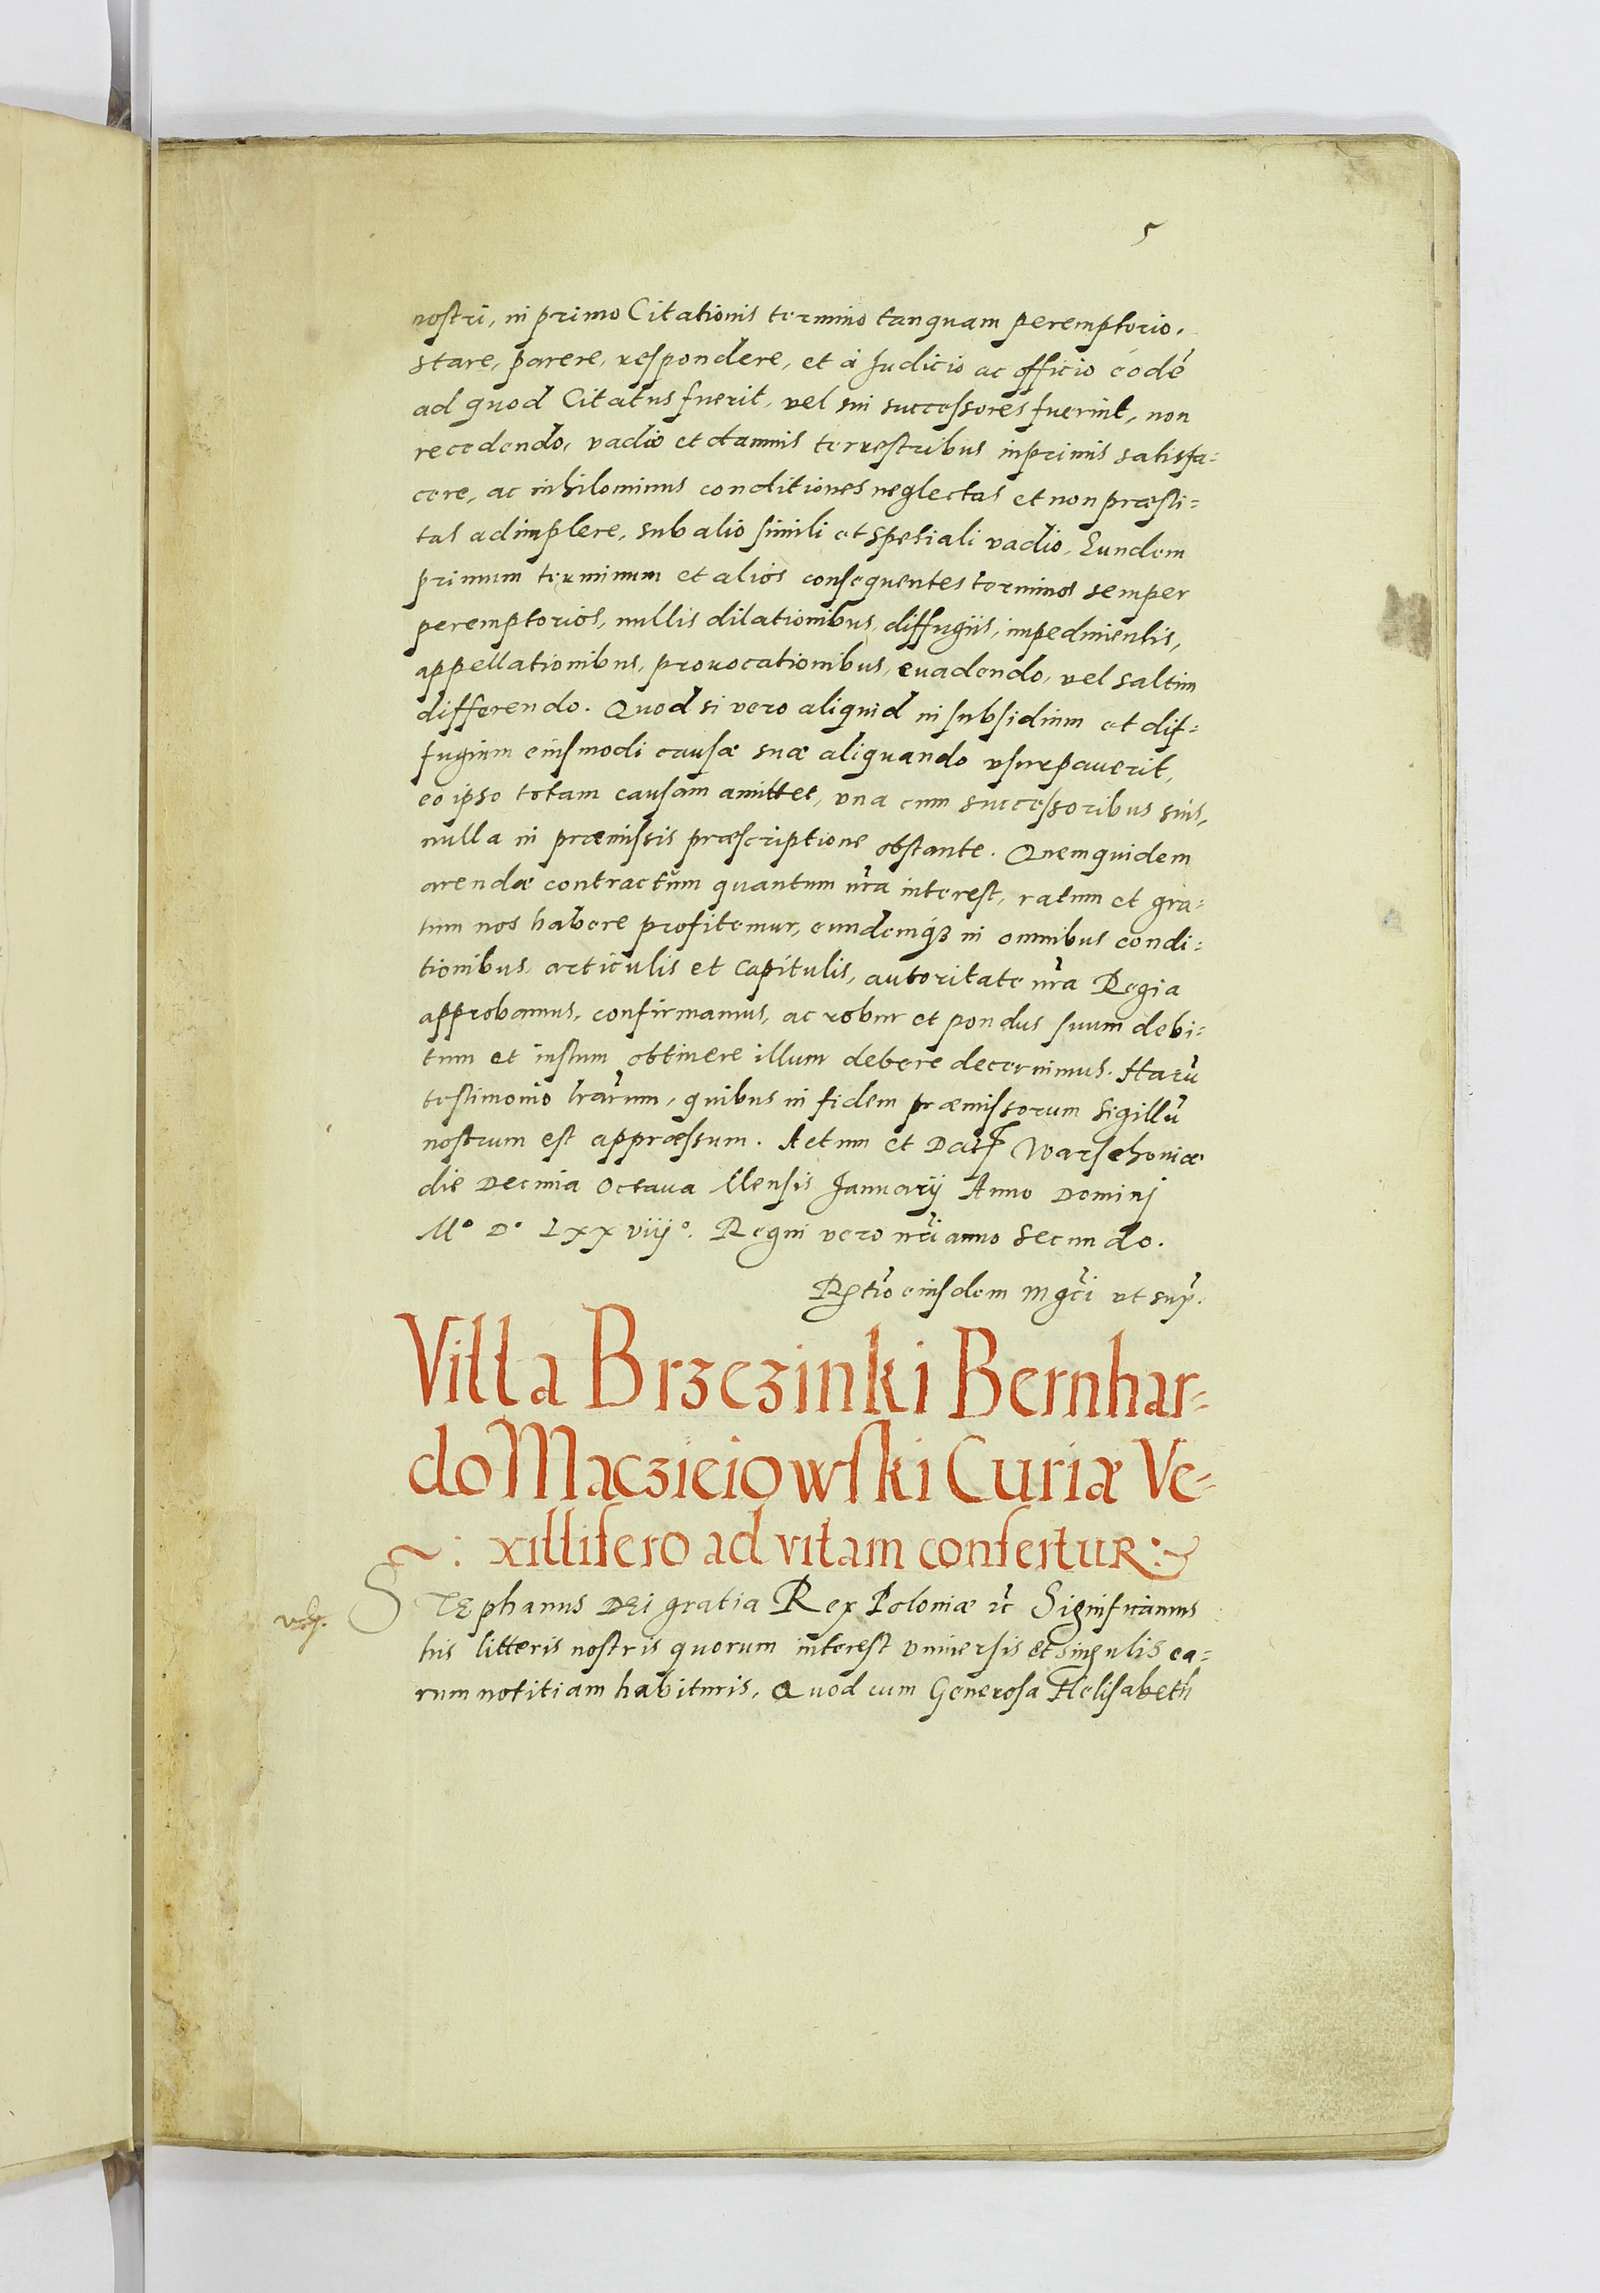 5
nostri, in primo Citationis termino tanquam peremptorio.
stare, parere, respondere, et à Judicio ac officio eodē
ad quod Citatus fuerit, vel sui successores fuerint, non
recedendo, vadio et damnis terrestribus inprimis satisfa=
cere, ac nihilominus conditiones neglectas et non præsti=
tas adimplere, sub alio simili et spetiali vadio, Eundem
primum terminum et alios consequentes terminos semper
peremptorios, nullis dilationibus, diffugiis, impedimentis,
appellationibus, prouocationibus, euadendo, vel saltim
differendo. Quod si vero aliquid in subsidium et dif=
fugium eiusmodi causæ suæ aliquando vsurpauerit,
eo ipso totam causam amittet, vna cum successoribus suis,
nulla in præmissis præscriptione obstante. Quemquidem
arendæ contractum quantum nrā interest, ratum et gra=
tum nos habere profitemur, eundemqꝫ in omnibus condi=
tionibus articulis et capitulis, autoritate nrā Regia
approbamus, confirmamus, ac robur et pondus suum debi=
tum et iustum obtinere illum debere decernimus. Harū
testimonio lrārum, quibus in fidem præmissorum Sigillū
nostrum est appræssum. Actum et Datꝭ Warschoviæ
die Decima Octaua Mensis Januarij Anno Dominj
Mº Dº Lxxviijº. Regni vero nrī anno Secundo.
Rꝑtio eiusdem Mgci vt sup.
Villa Brzezinki Bernhar=
do Macziciowski Curiæ Ve=
~: xillifero ad vitam confertur:~
STEphanus DEi gratia Rex Poloniæ ꝛc Significamus
his litteris nostris quorum interest vniuersis et singulis ea=
rum notitiam habituris, Quod cum Generosa Helisabeth